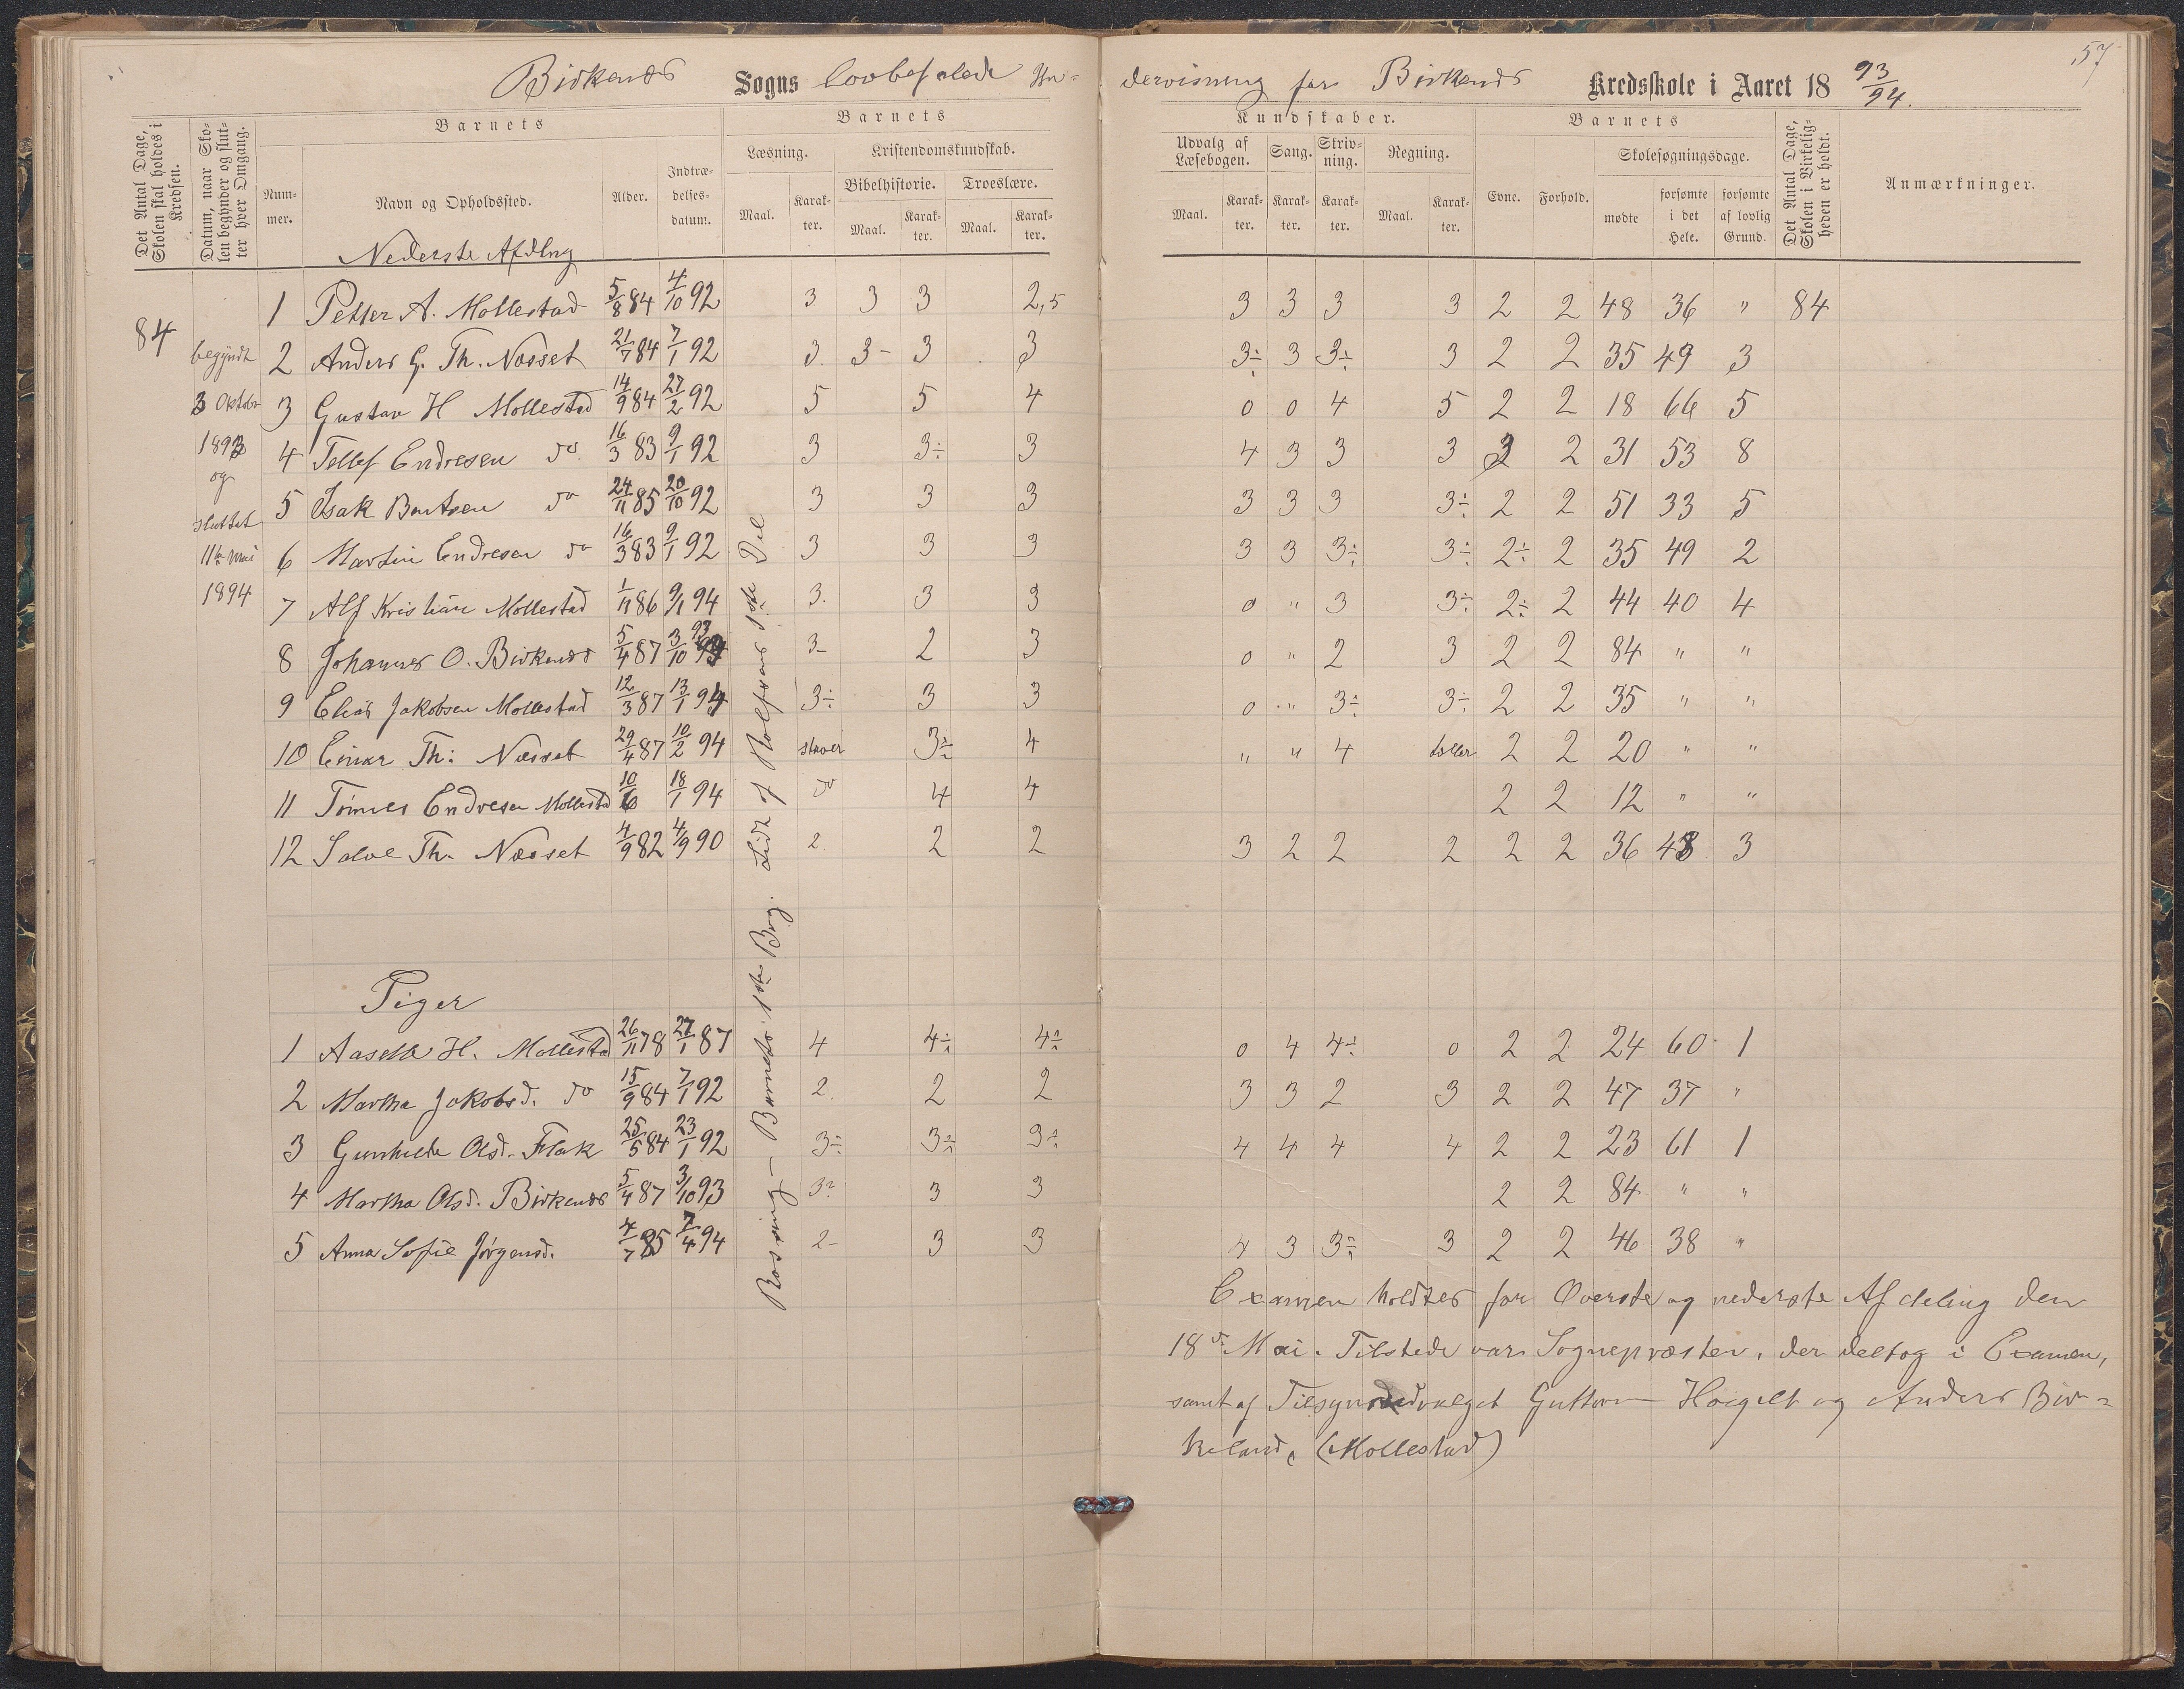 57
Birkenes Sogns lovbefalede Un-
dervisning for Birkenes Kredsskole i Aaret 18 93/94.
Det Antal Dage, Skolen skal holdes i Kredsen.
Datum, naar Skolen begynder og slutter hver Omgang.
Barnets
Nummer.
Navn og Opholdssted.
Alder.
Indtrædelsesdatum.
Barnets
Læsning.
Kristendomskundskab.
Bibelhistorie.
Troeslære.
Maal.
Karakter.
Maal.
Karakter.
Maal.
Karakter.
Kundskaber.
Udvalg af Læsebogen.
Sang.
Skrivning.
Regning.
Maal.
Karakter.
Karakter.
Karakter.
Maal.
Karakter.
Barnets
Evne.
Forhold.
Skolesøgningsdage.
mødte
forsømte i det Hele.
forsømte af lovlig Grund.
Det Antal Dage, Skolen i Virkeligheden er holdt.
Anmærkninger.
Nederste Afdlng
84
begyndt
3 Oktober
1893
og
sluttet
11te Mai
1894
1 Petter A. Mollestad 5/8 84 4/10 92 3 3 3 2,5 3 3 3 3 2 2 48 36 " 84
2 Anders G. Th. Næsset 21/7 84 7/1 92 3. 3- 3 3 3÷ 3 3÷ 3 2 2 35 49 3
3 Gustav H Mollestad 14/9 84 27/2 92 5 5 4 0 0 4 5 2 2 18 66 5
4 Tellef Endresen do 16/3 83 9/1 92 3 3÷ 3 4 3 3 3 2 2 31 53 8
5 Isak Bentsen do 24/11 85 20/10 92 3 3 3 3 3 3 3÷ 2 2 51 33 5
6 Martin Endresen do 16/3 83 9/1 92 3 3 3 3 3 3÷ 3÷ 2÷ 2 35 49 2
7 Alf Kristian Mollestad 1/11 86 9/1 94 3. 3 3 0 " 3 3÷ 2÷ 2 44 40 4
8 Johannes O. Birkenes 5/4 87 3/10 93 3- 2 3 0 " 2 3 2 2 84 " "
9 Elias Jakobsen Mollestad 12/3 87 13/1 94 3÷ 3 3 0 " 3÷ 3÷ 2 2 35 " "
10 Einar Th: Næsset 29/4 87 10/2 94 staver 3÷ 4 " " 4 tæller 2 2 20 " "
11 Tomes Endresen Mollestad 10/6 18/1 94 do 4 4 2 2 12 " "
12 Salve Th. Næsset 4/9 82 4/9 90 2. 2 2 3 2 2 2 2 2 36 48 3
Piger
1 Aaselle H. Mollestad 26/11 78 27/1 87 4 4÷ 4÷ 0 4 4÷ 0 2 2 24 60 1
2 Martha Jakobsd. do 15/9 84 7/1 92 2. 2 2 3 3 2 3 2 2 47 37 "
3 Gunhilde Olsd. Flak 25/5 84 23/1 92 3÷ 3÷ 3÷ 4 4 4 4 2 2 23 61 1
4 Martha Olsd. Birkenes 5/4 87 3/10 93 3÷ 3 3 2 2 84 " "
5 Anna Sofie Jørgensd. 4/7 85 7/4 94 2- 3 3 4 3 3÷ 3 2 2 46 38 "
1ste Bog. Lidt af 1ste Del
Examen holdtes for Øverste og nederste Afdeling den
18de Mai. Tilstede var Sognepræsten, der deltog i Examen,
samt af Tilsynsudvalget Guttorm Høigilt og Anders Bir-
keland, (Mollestad)